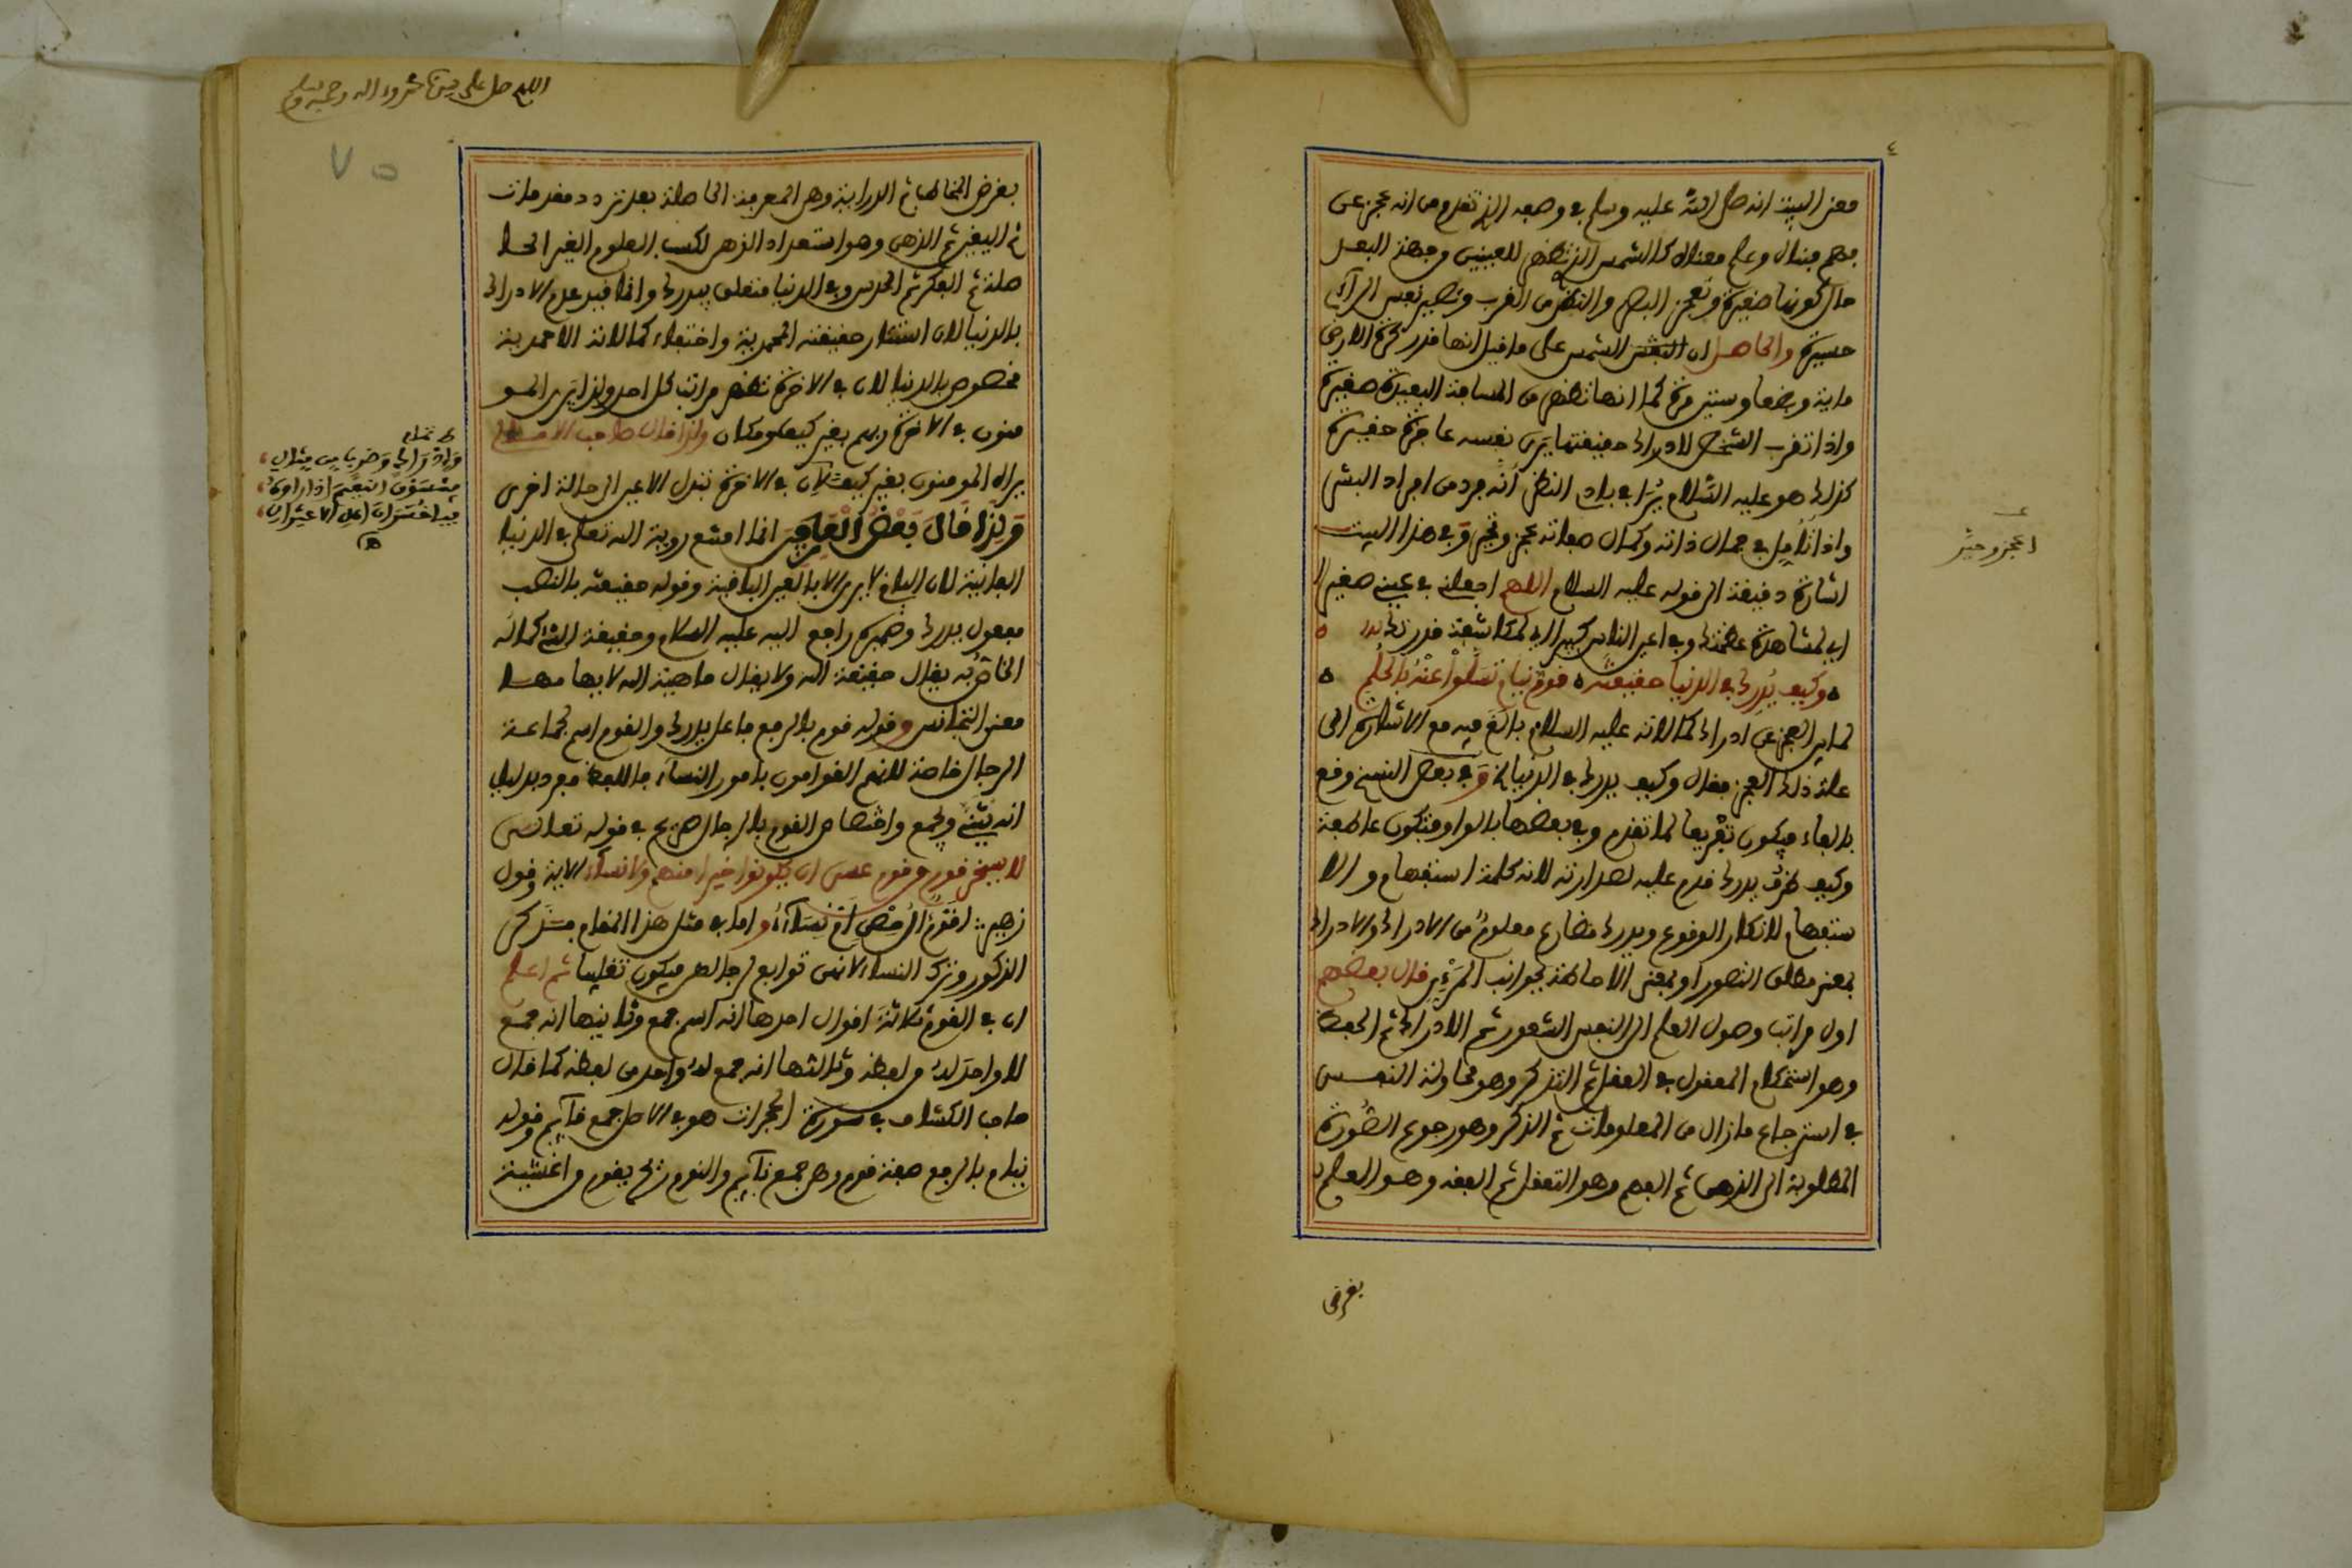 معنى البيت انه صلى الله عليه وسلم في وصفه الذي تقدم من انه عجز عن
فهم مبناه وعلم معناه كالشمس التي تظهر للعينين من جهة البعد
حال كونها صغيرة وتعجز البصر والنظر من القرب وتصير نفس الرآئي
حسيرة والحاصل ان الشمس على ما قيل انها قدر كرة الارض
ماية وبضعا وستين مرة كما انها تظهر من المسافة البعيدة صغيرة
واذا تقرب الشخص لادراك حقيقتها يرى نفسه عاجزة حقيرة
كذلك هو عليه السلام يُرَا في بادي النظر أنه فرد من افراد البشر
واذا تُأُمِل في جمال ذاته وكمال صفاته عجز وتحير وفي هذا البيت
اشارة دقيقة الى قوله عليه السلام اللهم اجعلني في عيني صغيرا
اي لمشاهدة عظمتك وفي اعين الناس كبيرا اي لمكاشفة قدرتك
وكيف يُدرك في الدنيا حقيقته قوم نيام تسلوا عنه بالحلم
لما بين العجز عن ادراك كمالاته عليه السلام بالغ فيه مع الاشارة الى
علة ذلك العجز فقال وكيف يدرك في الدنيا الخ وفي بعض النسخ وقع
بالفاء فيكون تفريعا لما تقدم وفي بعضها بالواو فتكون عاطفة
وكيف ظرف يدرك قدم عليه لصدارته لانه كلمة استفهام والا
ستفهام لانكار الوقوع ويدرك مضارع معلوم من الادراك والادراك
بمعنى مطلق التصور او بمعنى الاحاطة بجوانب المرْئِي قال بعضهم
اول مراتب وصول العلم الى النفس الشعور ثم الادراك ثم الحفظ
وهو استحكام المعقول في العقل ثم التذكر وهو محاولة النفس
في استرجاع ما زال من المعلومات ثم الذكر وهو رجوع الصورة
المطلوبة الى الذهن ثم الفهم وهو التعقل ثم الفقه وهو العلم
بغرض
٤
اعجز وحير
اللهم صل على سيدنا محمد واله وصحبه وسلم
٧٥
بغرض المخاطب ثم الدراية وهي المعرفة الحاصلة بعد تردد مقدمات
ثم اليقين ثم الذهن وهو استعداد الذهن لكسب العلوم الغير الحا
صلة ثم الفكر ثم الحدس وفي الدنيا متعلق بيدرك وانما قيد عدم الادراك
بالدنيا لان استتار حقيقته المحمدية واختفاء كمالاته الاحمدية
مخصوص بالدنيا لان في الاخرة تظهر مراتب كل احد ولذا يرى المو
منون في الاخرة ربهم بغير كيف ومكان ولذا قال صاحب الامالي
يراه المومنون بغير كيف لان في الاخرة تبدل الاعين الى حالة اخرى
وَلِذَا قَالَ بَعْضُ الْعَارِفِين انما امتنع روية الله تعلى في الدنيا
الفانية لان الباقي لا يرى الا بالعين الباقية وقوله حقيقته بالنصب
مفعول يدرك وضميره راجع اليه عليه السلام وحقيقة الشئ كماله
الخاص به يقال حقيقة الله ولا يقال ماهية الله لايهامها
معنى التجانس وقوله قوم بالرفع فاعل يدرك والقوم اسم لجماعة
الرجال خاصة لانهم القوامون بامور النساء فاللفظ مفرد بدليل
انه يثنى ويجمع واختصاص القوم بالرجال صريح في قوله تعالى
لا يسخر قوم من قوم عسى ان يكونوا خيرا منهم ولا نساء الاية وقول
زهير: اقوم ال حصن ام نساء واما في مثل هذا المقام فذكر
الذكور وترك النساء لانهن توابع لرجالهن فيكون تغليبا ثم اعلم
ان في القوم ثلاثة اقوال احدها انه اسم جمع وثانيها انه جمع
لا واحد له من لفظه وثالثها انه جمع له واحد من لفظه كما قال
صاحب الكشاف في سورة الحجرات هو في الاصل جمع قآيم وقوله
نيام بالرفع صفة قوم وهي جمع نآيم والنوم ريح يقوم من اغشية
وادراك وضرب من مثال
فينسون النعيم اذا راوه
فيا خسران اهل الاعتزال